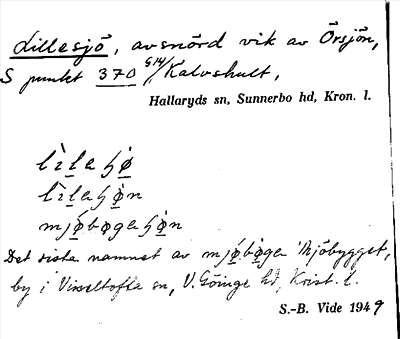 Lillesjö, avsnörd vik av Örsjön,
S punkt 370 S14/Kalvshult,
Hallaryds sn, Sunnerbo hd, Kron. l.
lìlaɧø̀
lìlaɧø̀n
mjǿbøgaɧø̀n
Det sista namnet av mjǿbøga 'Mjöbygget,
by i Visseltofta sn, V. Göinge hd, Krist. l.
S.-B. Vide 1949